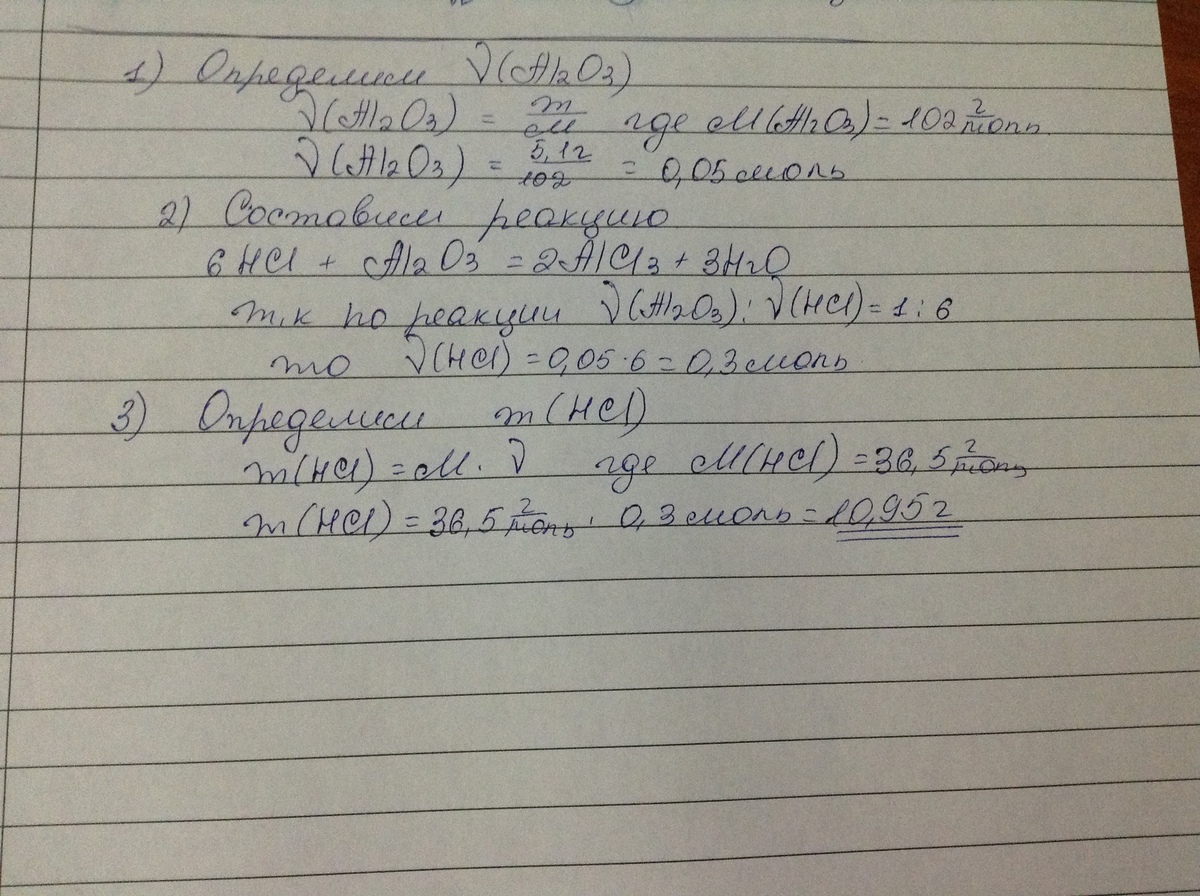 1) Определим ν(Al₂O₃)
ν(Al₂O₃) = m/M где M(Al₂O₃) = 102 г/моль
ν(Al₂O₃) = 5,1г/102 = 0,05 моль
2) Составим реакцию
6HCl + Al₂O₃ = 2AlCl₃ + 3H₂O
т.к по реакции ν(Al₂O₃) : ν(HCl) = 1 : 6
то ν(HCl) = 0,05 · 6 = 0,3 моль
3) Определим m(HCl)
m(HCl) = M · ν где M(HCl) = 36,5 г/моль
m(HCl) = 36,5 г/моль · 0,3 моль = 10,95 г